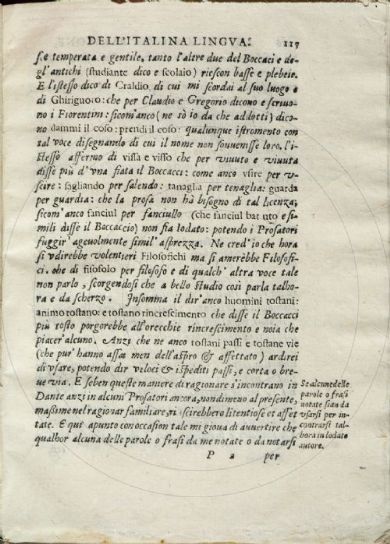 DELL'ITALINA LINGVA. 117
se temperata e gentile, tanto l'altre due del Boccaci e de
gl'antichi (studiante dico e scolaio) riescon basse e plebeie.
E l'istesso dico di Craldio, di cui mi scordai al suo luogo e
di Ghirigoro: che per Claudio e Gregorio dicono e scriuo
no i Fiorentini: sicom'anco (ne sò io da che addotti) dico
no dammi il coso: prendi il coso: qualunque istromento con
tal voce disegnando di cui il nome non souuenisse loro. l'i-
stesso affermo di vissa e visso che per viuuto e viuuta
disse più d'vna fiata il Boccacci: come anco vsire per v-
scire: sagliendo per salendo: tanaglia per tenaglia: guarda
per guardia: che la prosa non hà bisogno di tal licenza,
sicom'anco fanciul per fanciullo (che fanciul battuto e si-
mili disse il Boccaccio) non fia lodato: potendo i Prosatori
fuggir ageuolmente simil'asprezza. Ne cred'io che hora
si vdirebbe volentieri Filosofichi ma si amerebbe Filosofi-
ci. ohe di fisofolo per filosofo e di qualch'altra voce tale
non parlo, scorgendosi che a bello studio così parla talho-
ra e da scherzo. Insomma il dir'anco huomini tostani:
animo tostano: e tostano rincrescimento che disse il Boccacci
più tosto porgerebbe all'orecchie rincrescimento e noia che
piacer alcuno. Anzi che ne anco tostani passi e tostane vie
(che pur'hanno assai men dell'aspro & affettato) ardirei
di vsare, potendo dir veloci & ispediti passi, e corta o bre-
ue via. E seben queste maniere di ragionare s'incontrano in
Dante anzi in alcuni Prosatori ancora, nondimeno al presente,
massime nel ragionar familiare, riescirebbero litentiose et affet
tate. E quì apunto con occasion tale mi gioua di auuertire che
qualhor alcuna delle parole o frasi da me notate o da notarsi
Se alcune delle
parole o frasi
notate siano da
vsarsi per in-
contrarsi tal-
hora in lodato
autore.
P 2 per